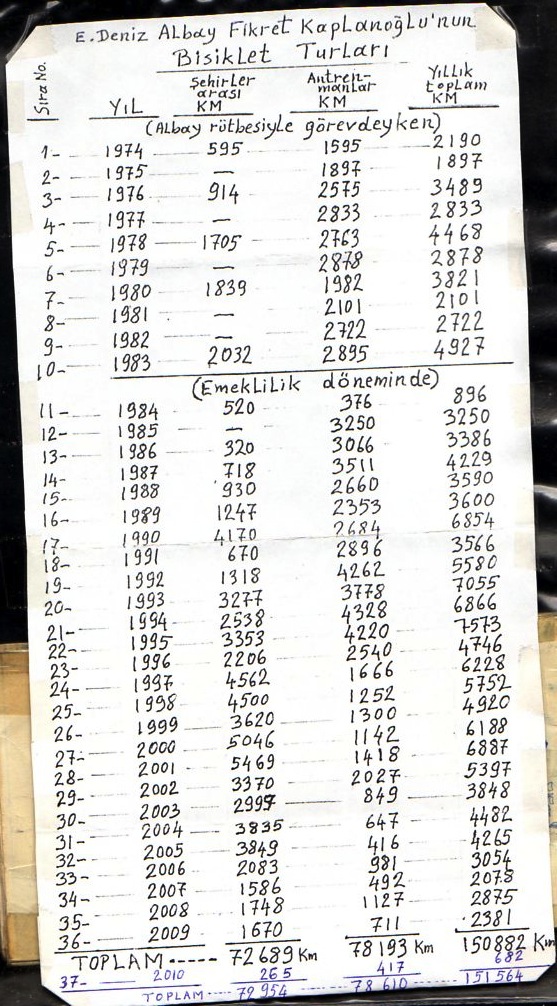 E. Deniz Albay Fikret Kaplanoğlu'nun
Bisiklet Turları
Sıra No. YIL Şehirler arası KM Antren- manlar KM Yıllık toplam KM
(Albay rütbesiyle görevdeyken)
1- 1974 595 1595 2190
2- 1975 — 1897 1897
3- 1976 914 2575 3489
4- 1977 — 2833 2833
5- 1978 1705 2763 4468
6- 1979 — 2878 2878
7- 1980 1839 1982 3821
8- 1981 — 2101 2101
9- 1982 — 2722 2722
10- 1983 2032 2895 4927
(Emeklilik döneminde)
11- 1984 520 376 896
12- 1985 — 3250 3250
13- 1986 320 3066 3386
14- 1987 718 3511 4229
15- 1988 930 2660 3590
16- 1989 1247 2353 3600
17- 1990 4170 2684 6854
18- 1991 670 2896 3566
19- 1992 1318 4262 5580
20- 1993 3277 3778 7055
21- 1994 2538 4328 6866
22- 1995 3353 4220 7573
23- 1996 2206 2540 4746
24- 1997 4562 1666 6228
25- 1998 4500 1252 5752
26- 1999 3620 1300 4920
27- 2000 5046 1142 6188
28- 2001 5469 1418 6887
29- 2002 3370 2027 5397
30- 2003 2999 849 3848
31- 2004 3835 647 4482
32- 2005 3849 416 4265
33- 2006 2083 981 3054
34- 2007 1586 492 2078
35- 2008 1748 1127 2875
36- 2009 1670 711 2381
TOPLAM ----- 72 689 Km 78 193 Km 150882 Km
37- 2010 265 417 682
TOPLAM 72 954 78 610 151 564